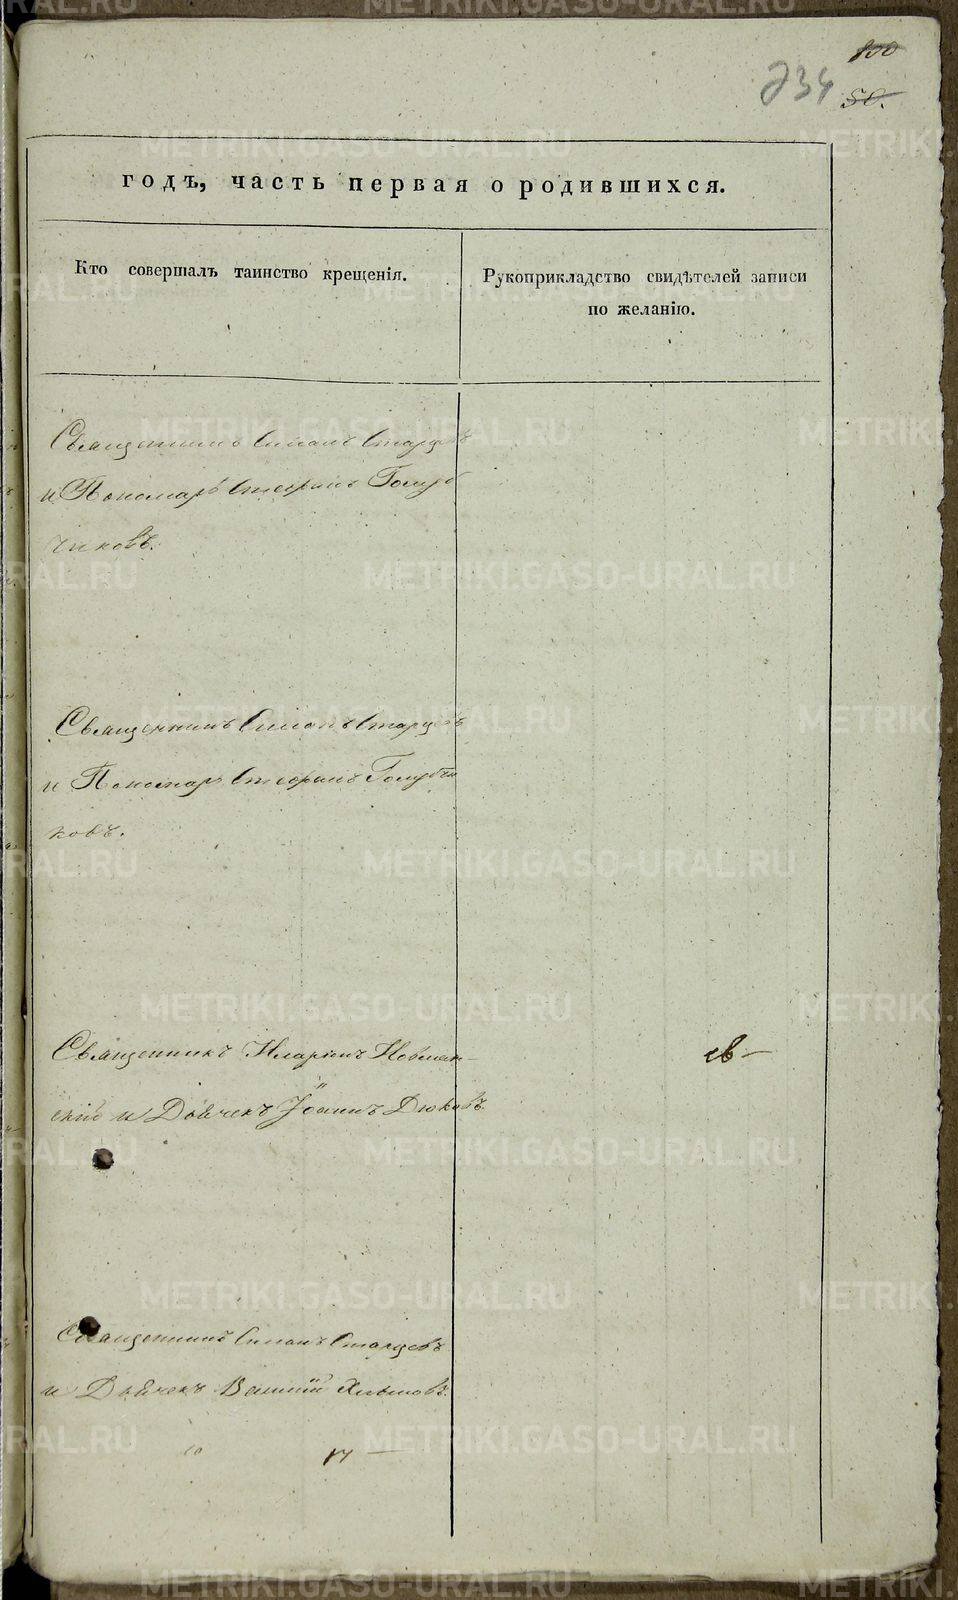 100
734
50.
годъ, часть первая о родившихся.
Кто совершалъ таинство крещенія.
Рукоприкладство свидѣтелей записи
по желанію.
Священникъ Симонъ Старцевъ
и Пономарь Стефанъ Голуб
чиковъ.
Священникъ Симонъ Старцевъ
и Пономарь Стефанъ Голубчи
ковъ.
Священникъ Иларіонъ
скій и Дьячекъ Іоаннъ Дюковъ
Священникъ Симонъ Старцевъ
и Дьячекъ
METRIKI.GASO-URAL.RU